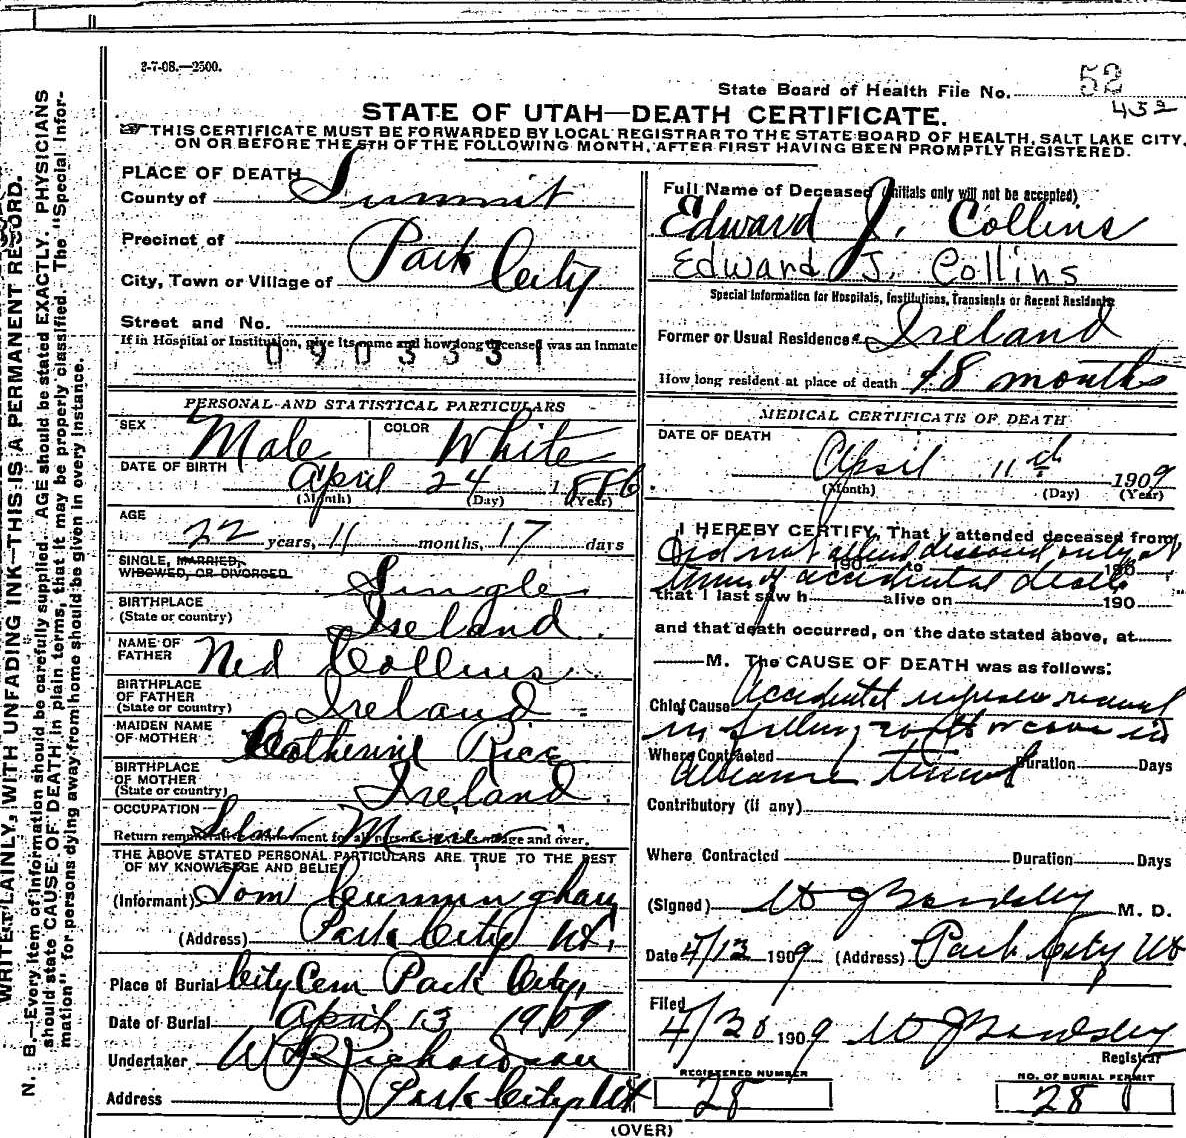 2-7-08.—2500.
State Board of Health File No. 52
452
STATE OF UTAH—DEATH CERTIFICATE.
THIS CERTIFICATE MUST BE FORWARDED BY LOCAL REGISTRAR TO THE STATE BOARD OF HEALTH, SALT LAKE CITY,
ON OR BEFORE THE 5TH OF THE FOLLOWING MONTH, AFTER FIRST HAVING BEEN PROMPTLY REGISTERED.
WRITE PLAINLY, WITH UNFADING INK—THIS IS A PERMANENT RECORD.
N. B.—Every item of information should be carefully supplied. AGE should be stated EXACTLY. PHYSICIANS
should state CAUSE OF DEATH in plain terms, that it may be properly classified. The "Special Infor-
mation" for persons dying away from home should be given in every instance.
PLACE OF DEATH
County of Summit
Precinct of
City, Town or Village of Park City
Street and No.
If in Hospital or Institution, give its name and how long deceased was an inmate
0903331
PERSONAL AND STATISTICAL PARTICULARS
SEX Male COLOR White
DATE OF BIRTH April 24 1886
(Month) (Day) (Year)
AGE
22 years, 11 months, 17 days
SINGLE, MARRIED,
WIDOWED, OR DIVORCED Single
BIRTHPLACE
(State or country) Ireland
NAME OF
FATHER Ned Collins
BIRTHPLACE
OF FATHER
(State or country) Ireland
MAIDEN NAME
OF MOTHER Catherine Rice
BIRTHPLACE
OF MOTHER
(State or country) Ireland
OCCUPATION
Return remunerative employment for all persons in this age and over.
THE ABOVE STATED PERSONAL PARTICULARS ARE TRUE TO THE BEST
OF MY KNOWLEDGE AND BELIEF
(Informant) Tom Cunningham
(Address) Park City Ut.
Place of Burial City Cem Park City,
Date of Burial April 13 1909
Undertaker W Richardson
Address Park City Ut
Full Name of Deceased (Initials only will not be accepted)
Edward J. Collins
Edward J. Collins
Special Information for Hospitals, Institutions, Transients or Recent Residents
Former or Usual Residence Ireland
How long resident at place of death 18 months
MEDICAL CERTIFICATE OF DEATH
DATE OF DEATH
April 11th 1909
(Month) (Day) (Year)
I HEREBY CERTIFY, That I attended deceased from
Did not attend deceased only at
190 to 190
time of accidental death
that I last saw h alive on 190
and that death occurred, on the date stated above, at
M. The CAUSE OF DEATH was as follows:
Chief Cause Accidental injuries received
in falling
Where Contracted Alliance Tunnel Duration Days
Contributory (if any)
Where Contracted Duration Days
(Signed) W J Bardsley M. D.
Date 4/13 1909 (Address) Park City Ut
Filed
4/30 1909 W J Bardsley
Registrar
REGISTERED NUMBER
28
NO. OF BURIAL PERMIT
28
(OVER)